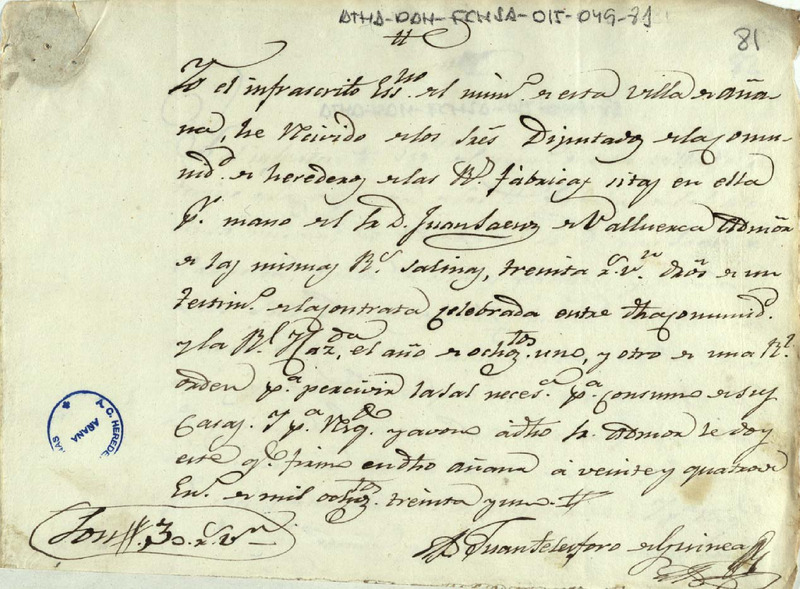 ATHA-DAH-FCHSA-015-049-81
81
Yo el infrascrito Essno. del num.º de esta villa de aña-
na, he recivido de los tres Diputados de la comu-
nid.d de herederos de las R.s fabricas sitas en ella
p.r mano del Sr. D. Juan Saenz de Valluerca Admor
de las mismas R.s Salinas, treinta r.s v.n dros de un
testim.º de la contrata celebrada entre dha comunid.d
y la R.l Haz.da, el año de ochoz.tos uno, y otro de una R.l
orden p.a percivir la sal neces.a p.a consumo de sus
Casas. Y p.a resg.do y avono a dho Sr. Admor le doy
este q.e firmo en dho añana a veinte y quatro de
En.º de mil ochoz.tos treinta y uno.
Son #. 30. r.s v.n
Juan Telesforo de Guinea
A C. HEREDE
AÑANA
NAS